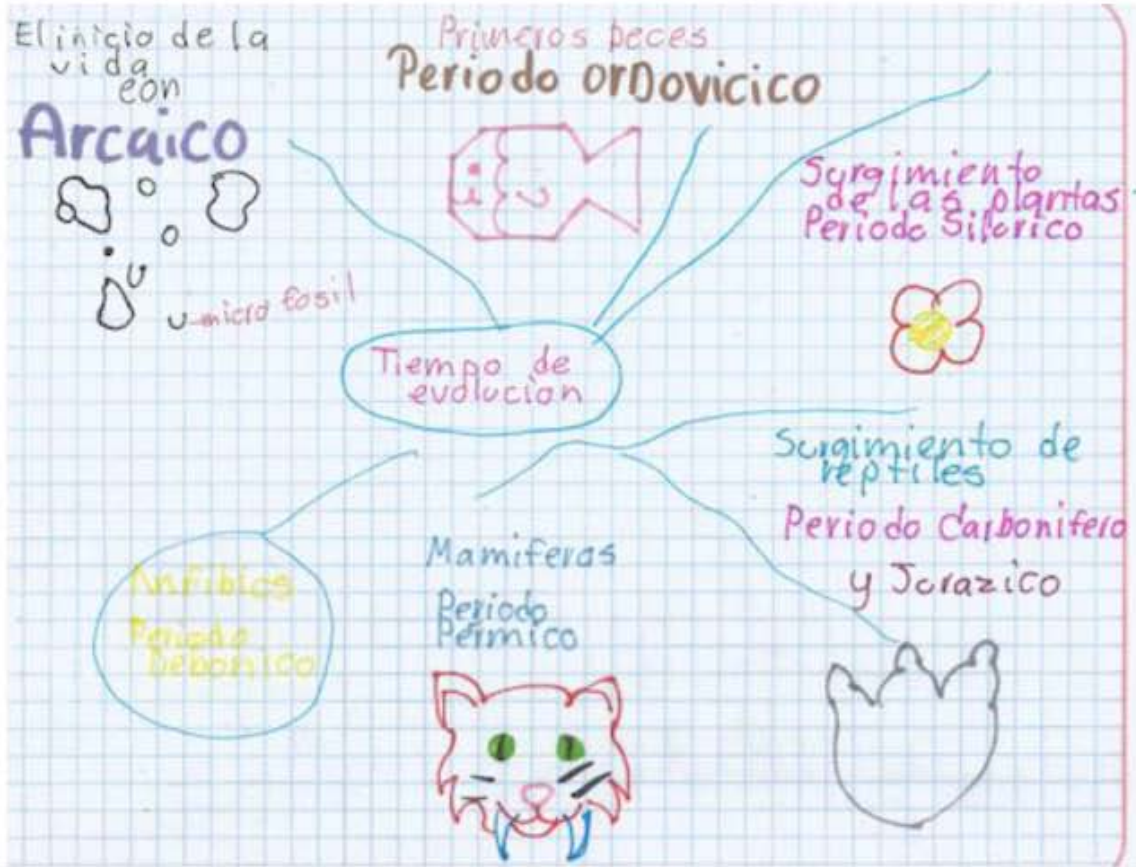 El inicio de la
vida
eon
Arcaico
micro fosil
Primeros peces
Periodo orDovicico
Surgimiento
de las plantas
Periodo Silorico
Tiempo de
evolucion
Surgimiento de
reptiles
Periodo Carbonifero
y Jorazico
Mamiferos
Periodo
Pérmico
Anfibios
Periodo
Debonico